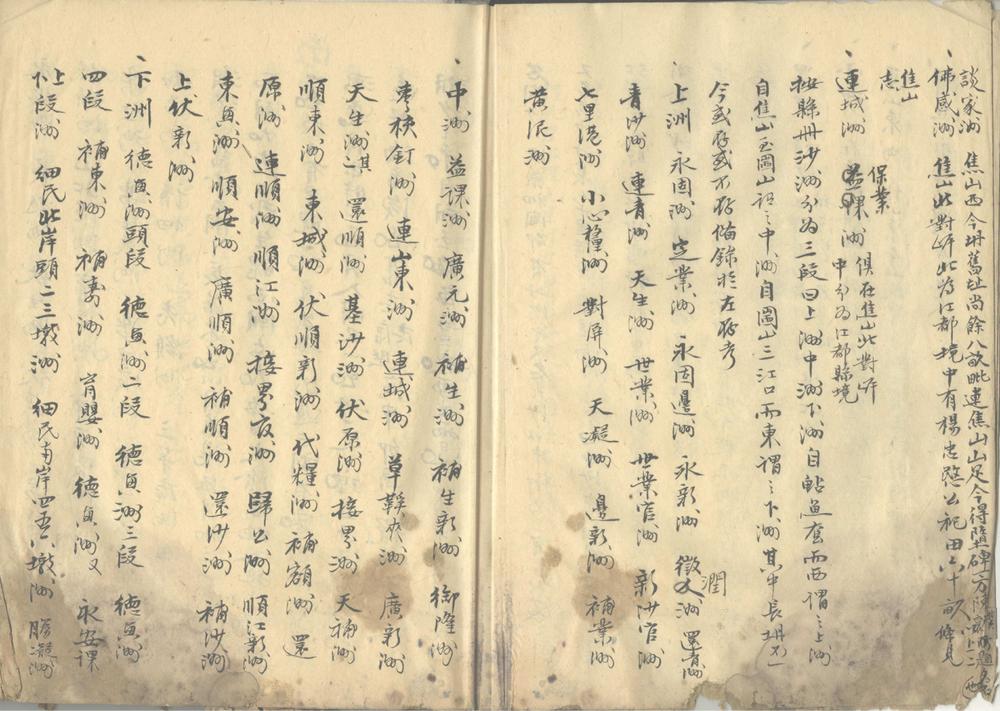 談家洲 焦山西今坍舊址尚餘八畝毗連焦山山足今得墮碑一方
佛感洲 焦山此對岸北为江都境中有楊忠愍公祀田六十畝
焦山志
連城洲 益课洲 俱在焦山北對岸中分为江都縣境
保業
按縣冊沙洲分为三段曰上洲中洲下洲自鲇鱼套而西谓之上洲
自焦山至圌山谓之中洲自圌山三江口而東谓之下洲其中長坍不一
今或存或不存俻錄於左存考
上洲 永固洲 定業洲 永固邊洲 永新洲 徵人洲 還青洲
潤
青沙洲 連青洲 天生洲 世業洲 世業官洲 新沙官洲
七里港洲 小心糧洲 對屏洲 天凝洲 邊新洲 補業洲
黄泥洲
中洲 益课洲 廣元洲 補生洲 補生新洲 御隆洲
棗核釘洲 連山東洲 連城洲 草鞋夾洲 廣新洲
天生洲其二 還順洲 基沙洲 伏原洲 接界洲 天補洲
順東洲 東城洲 伏順新洲 代糧洲 補額洲 還
原洲 連順洲 順江洲 接界夜洲 歸公洲 順江新洲
東貞洲 順安洲 廣順洲 補順洲 還沙洲 補沙洲
上伏新洲
下洲 德貞洲頭段 德貞洲二段 德貞洲三段 德貞洲
四段 補東洲 補壽洲 育嬰洲 德貞洲又 永安课
上下段洲 細民北岸頭二三墩洲 細民南岸四五六墩洲 勝凝洲